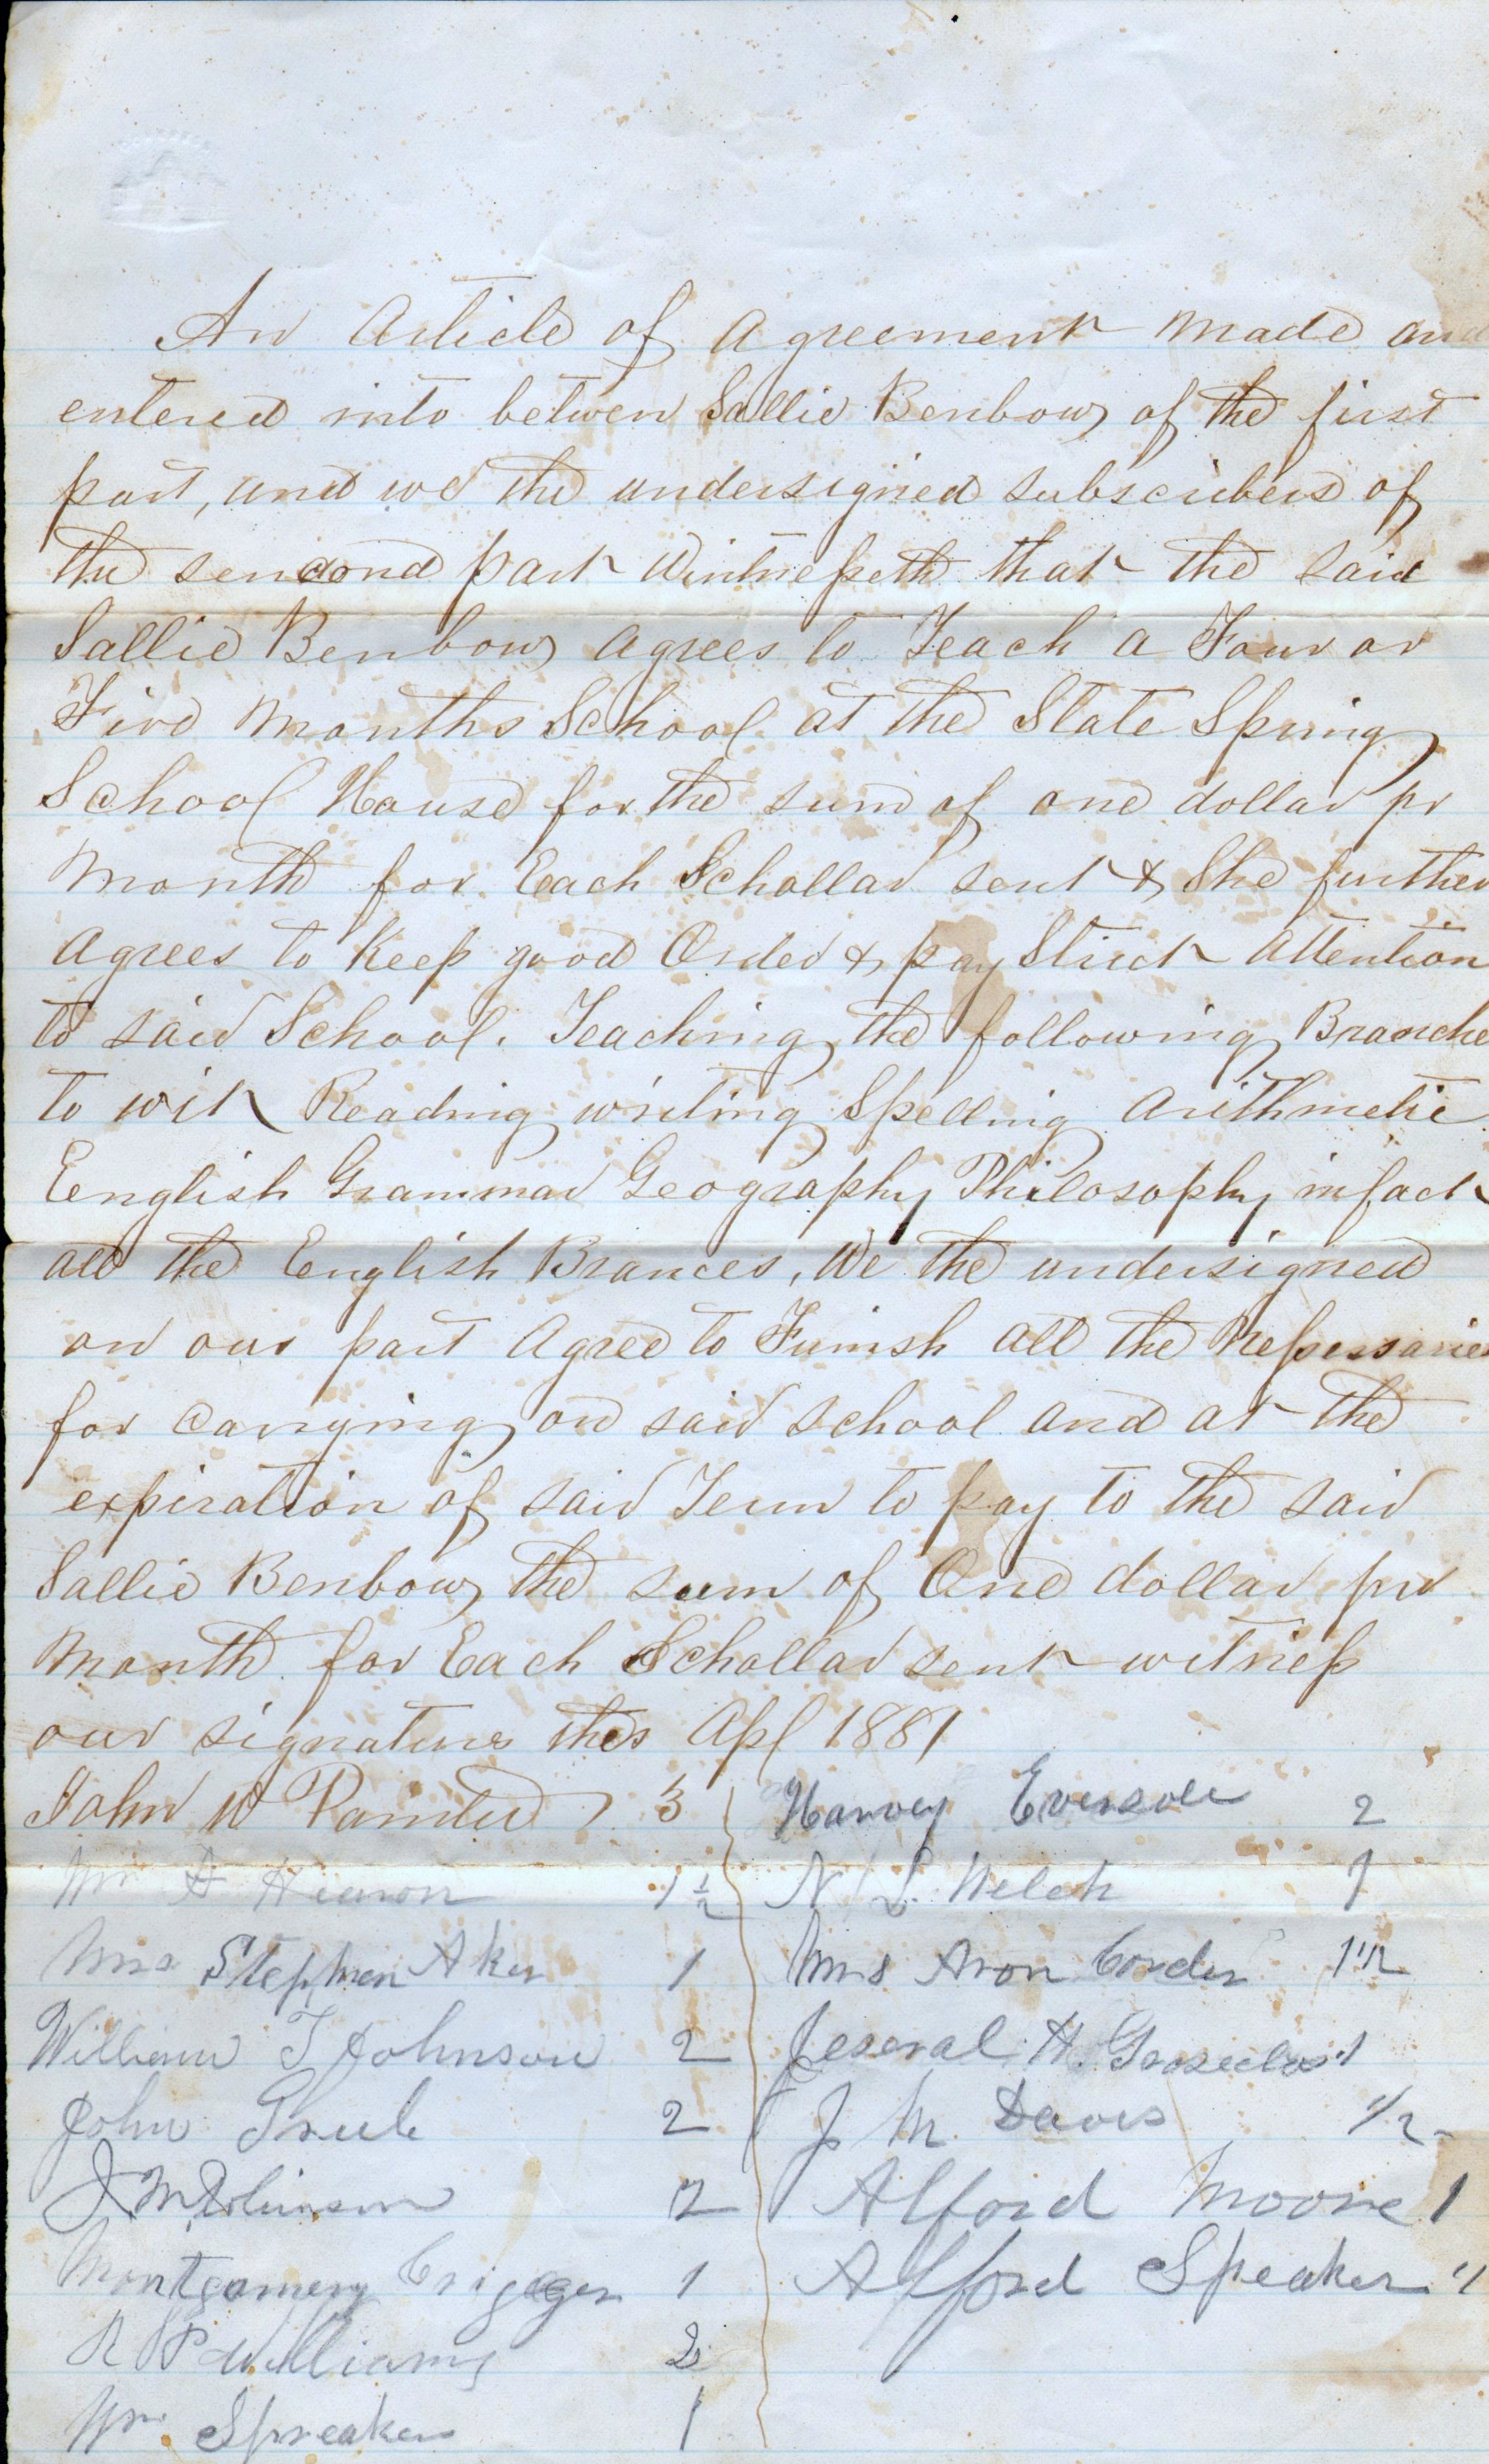 An Article of Agreement made and
entered into betwen Sallie Benbow of the first
part, and we the undersigned subscribers of
the sencond part Wintnesseth that the said
Sallie Benbow agrees to Teach a Four or
Five Months School at the State Spring
School House for the sum of one dollar pr
Month for Each Schollar sent & She further
agrees to Keep good Order & pay Strict attention
to said School. Teaching the following Branche
to wit Reading writing Spelling Arithmetic
English Grammar Geography Philosophy infact
all the English Brances, We the undersigned
on our part Agree to Furnish all the Nessessaries
for carrying on said school and at the
expiration of said Term to pay to the said
Sallie Benbow the sum of One dollar pr
Month for Each Schollar sent witness
our signatures this Apl 1881
John W Painter 3
Harvey Eversole 2
A 1 1/2
N Welch 1
Mrs Stephen Aker 1
Mrs Aron Corder 1 1/2
William T Johnson 2
H. Groseclos 1
John Grub 2
J M Davis 1/2
2
Alford Moore 1
Montgomery Crigger 1
Alford Speaker 1
R P Williams 2
Wm Spreaker 1